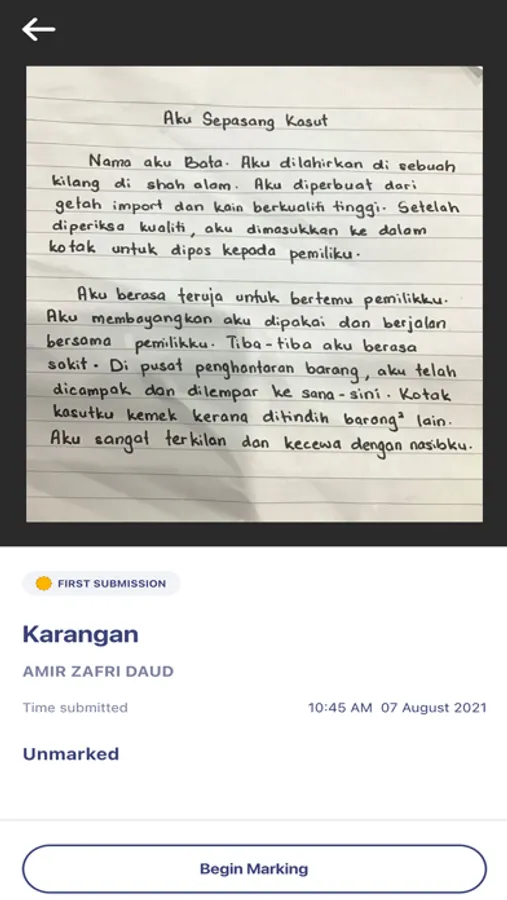 Aku Sepasang Kasut
Nama aku Bata. Aku dilahirkan di sebuah
kilang di shah alam. Aku diperbuat dari
getah import dan kain berkualiti tinggi. Setelah
diperiksa kualiti, aku dimasukkan ke dalam
kotak untuk dipos kepada pemiliku.
Aku berasa teruja untuk bertemu pemilikku.
Aku membayangkan aku dipakai dan berjalan
bersama pemilikku. Tiba-tiba aku berasa
sakit. Di pusat penghantaran barang, aku telah
dicampak dan dilempar ke sana-sini. Kotak
kasutku kemek kerana ditindih barang² lain.
Aku sangat terkilan dan kecewa dengan nasibku.
FIRST SUBMISSION
Karangan
AMIR ZAFRI DAUD
Time submitted 10:45 AM 07 August 2021
Unmarked
Begin Marking